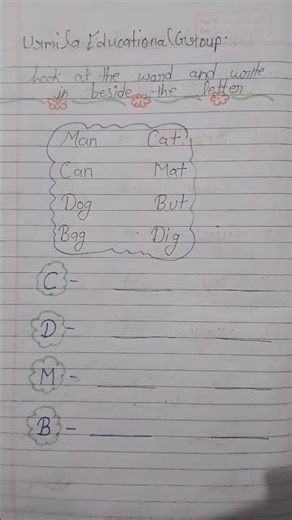 Urmila Educational Group:
Look at the word and write
in beside the letter
Man Cat
Can Mat
Dog But
Bag Dig
C -
D -
M -
B -